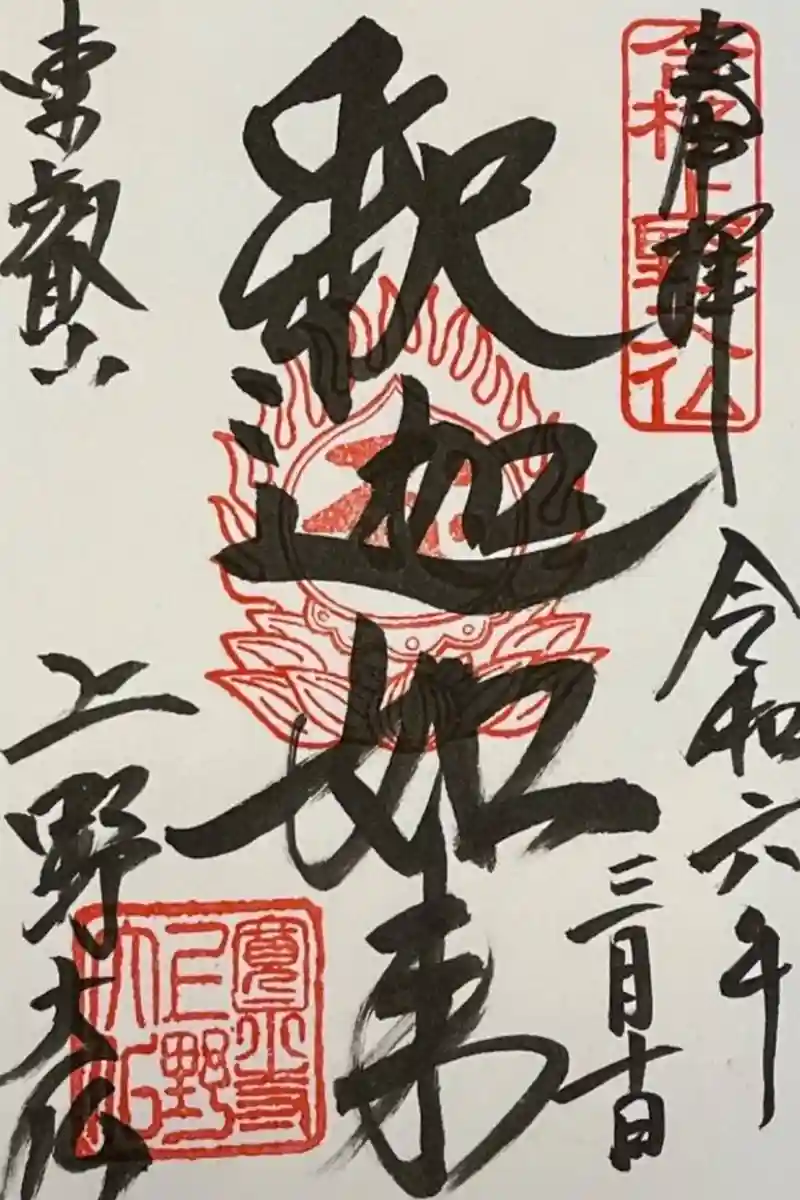 奉拝
合格上野大仏
令和六年
三月十日
釈迦如来
東叡山
上野大仏
寛永寺
上野
大仏